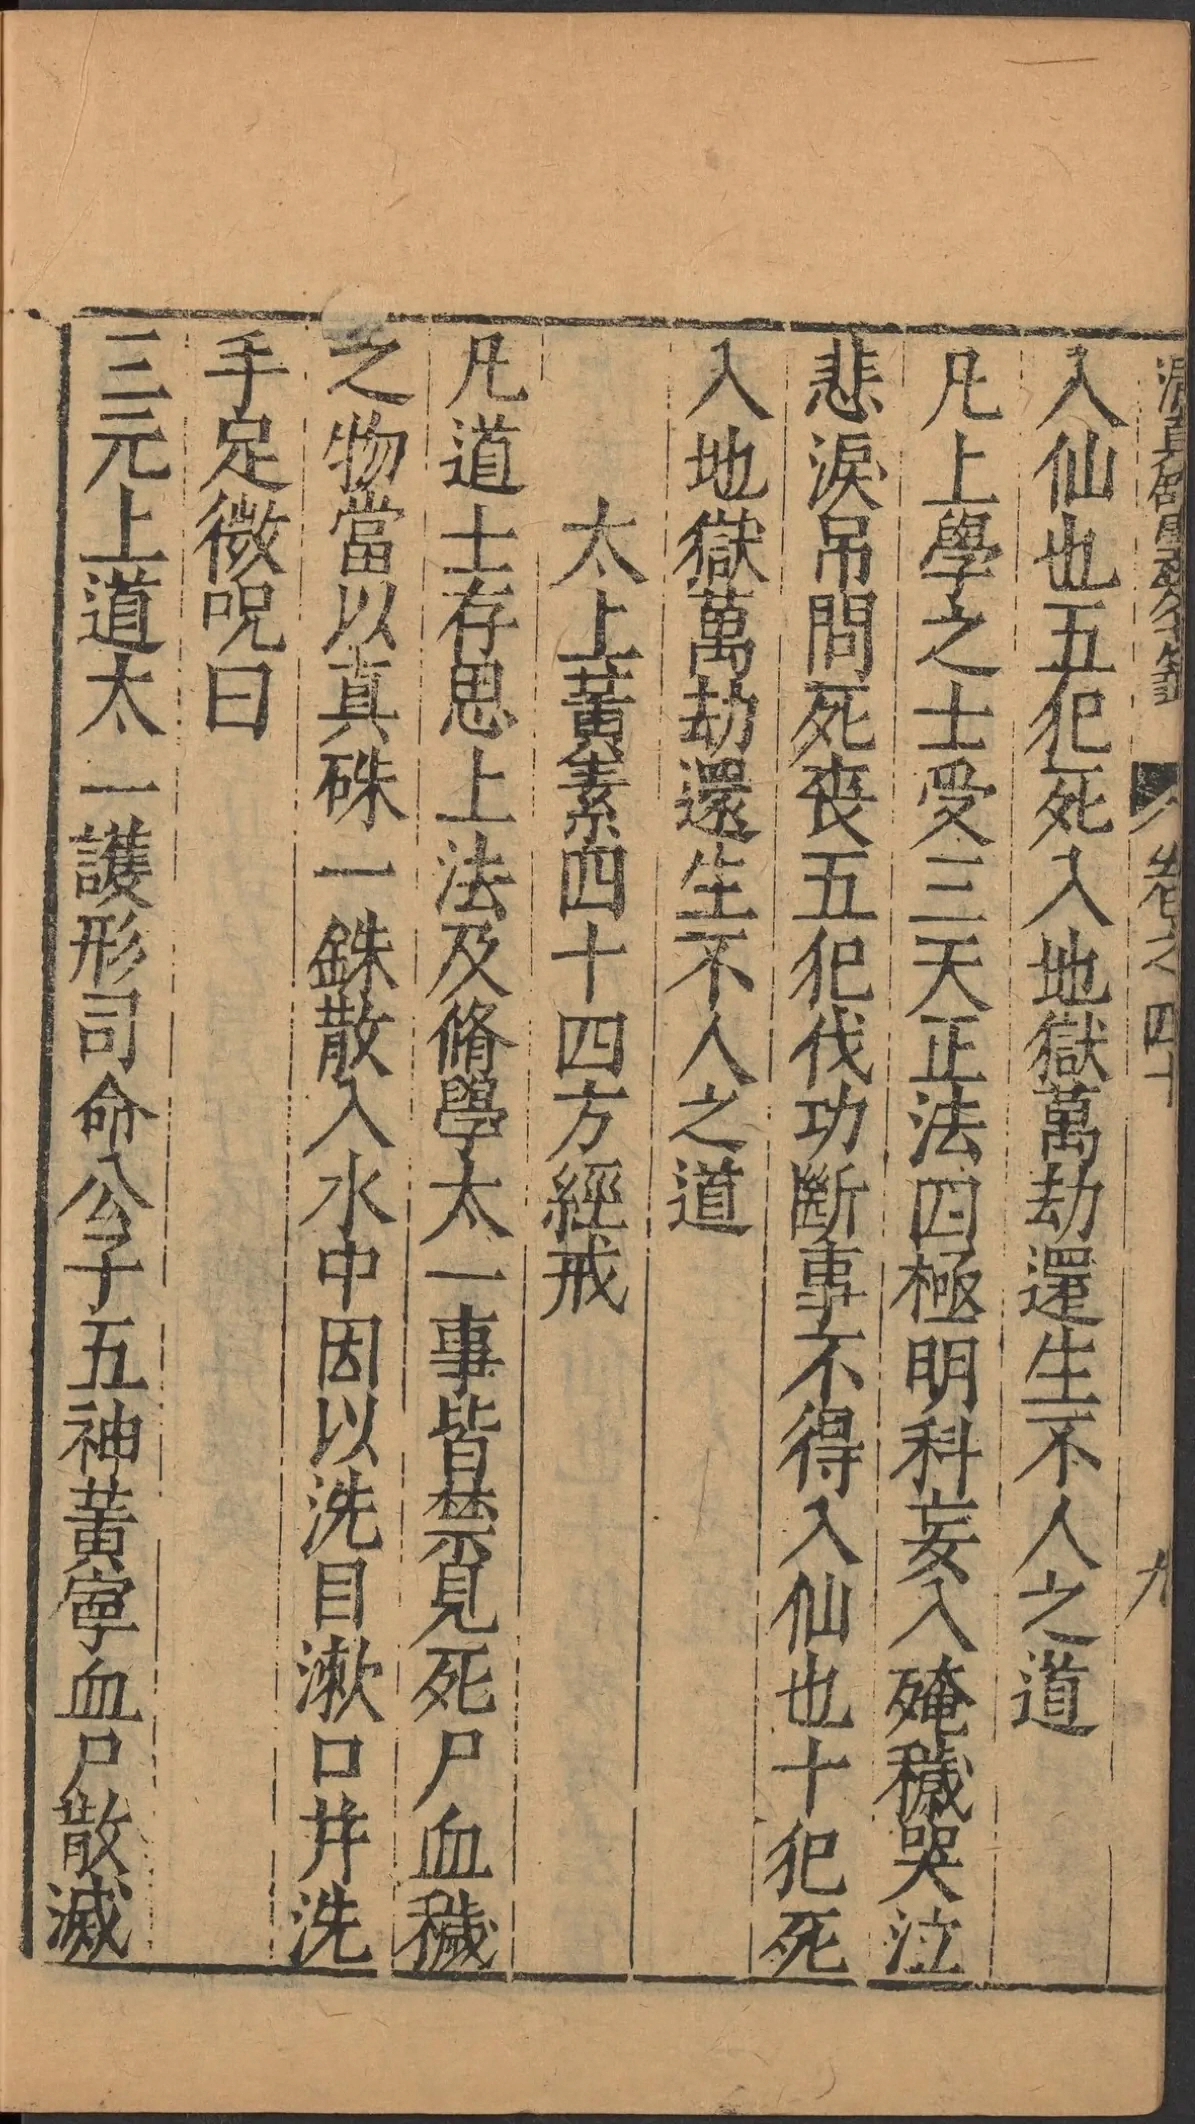 卷之四十 九
入仙也五犯死入地獄萬劫還生不人之道
凡上學之士受三天正法四極明科妄入殗穢哭泣
悲淚吊問死喪五犯伐功斷事不得入仙也十犯死
入地獄萬劫還生不人之道
太上黃素四十四方經戒
凡道士存思上法及脩學太一事皆禁見死尸血穢
之物當以真硃一銖散入水中因以洗目漱口并洗
手足微呪曰
三元上道太一護形司命公子五神黃寧血尸散滅